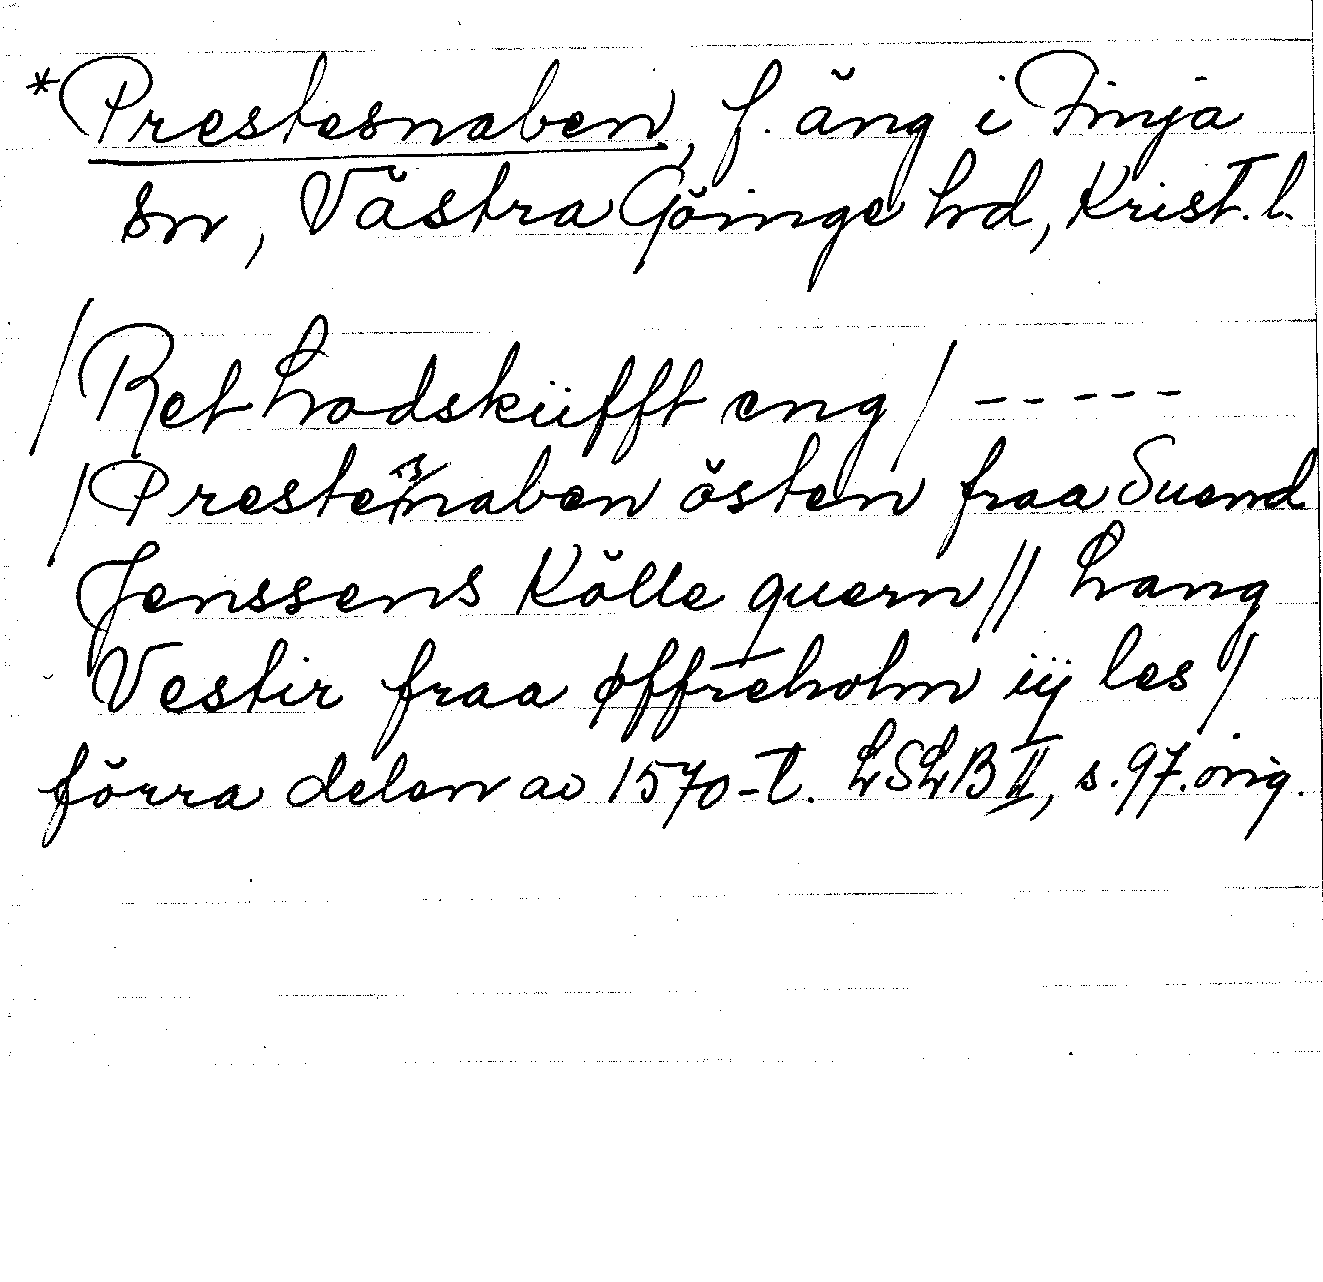 *Prestesnaben, f. äng i Finja
sn, Västra Göinge hd, Krist. l.
/Ret Lodsküfft eng/ -----
/Prestesnaben östen fraa Suend
Jenssens Kölle quern// Lang
Vestir fraa øffreholm iÿ les/
förra delen av 1570-t. LSLB II, s. 97. orig.